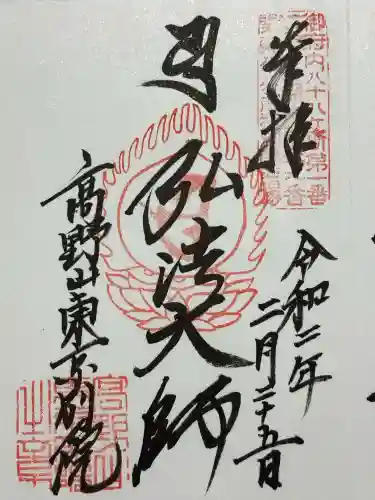 奉拝
令和二年
二月二十五日
弘法大師
高野山東京別院
御府内八十八ヶ所第一番